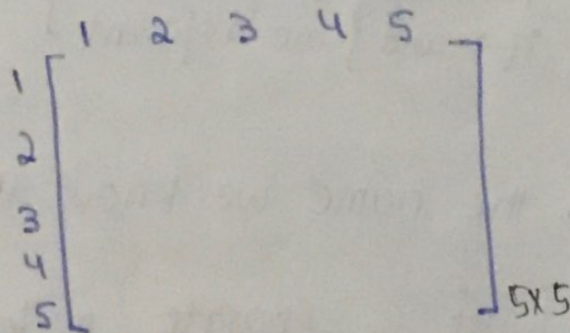 1 2 3 4 5
1
2
3
4
5
5x5